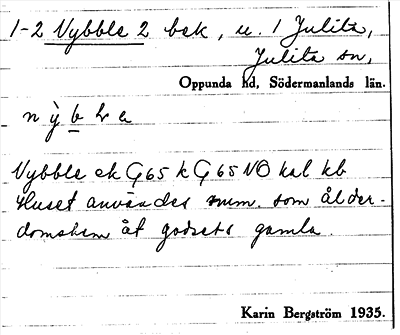 1-2 Vybble 2 bsk, u. 1 Julita,
Julita sn,
Oppunda hd, Södermanlands län.
Vybble ek G 65 k G 65 NO kal kb
Huset användes num. som ålder-
domshem åt godsets gamla.
Karin Bergström 1935.